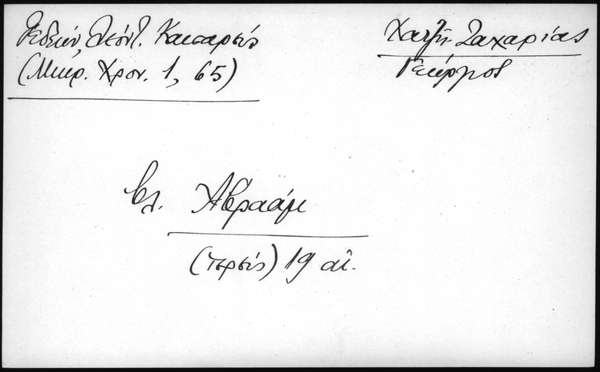 Κεδεών, Λεόντ. Καισαρεύς
(Μικρ. Χρον. 1, 65)
Χατζῆ Ζαχαρίας
Γεώργιος
βλ. Ἀβραάμ
(ἱερεύς) 19 αἰ.